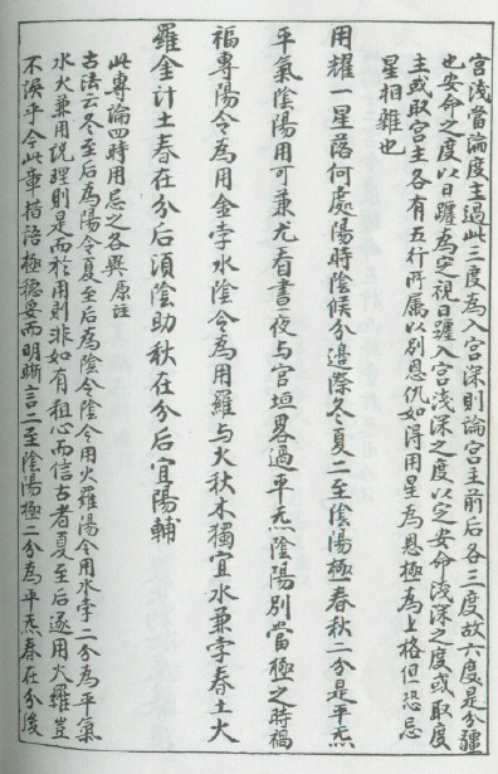 宮淺當論度主過此三度為入宮深則論宮主前后各三度故六度是分疆
也安命之度以日躔為定視日躔入宮淺深之度以定安命淺深之度或取度
主或取宮主各有五行所属以别恩仇如得用星為恩極為上格但恐忌
星相雜也
用耀一星落何處陽時陰候分邉際冬夏二至陰陽極春秋二分是平炁
平氣陰陽用可兼尤看晝夜与宮垣畧過平炁陰陽别當極之時禍
福專陽令為用金孛水陰令為用羅与火秋木獨宜水兼孛春土大
羅金計土春在分后湏陰助秋在分后宜陽輔
此專論四時用忌之各異原註
古法云冬至后為陽令夏至后為陰令陰令用火羅陽令用水孛二分為平氣
水火兼用説理則是而於用則非如有粗心而信古者夏至后逐用火羅豈
不误乎今此章措語極穏妥而明晰言二至陰陽極二分為平炁春在分後